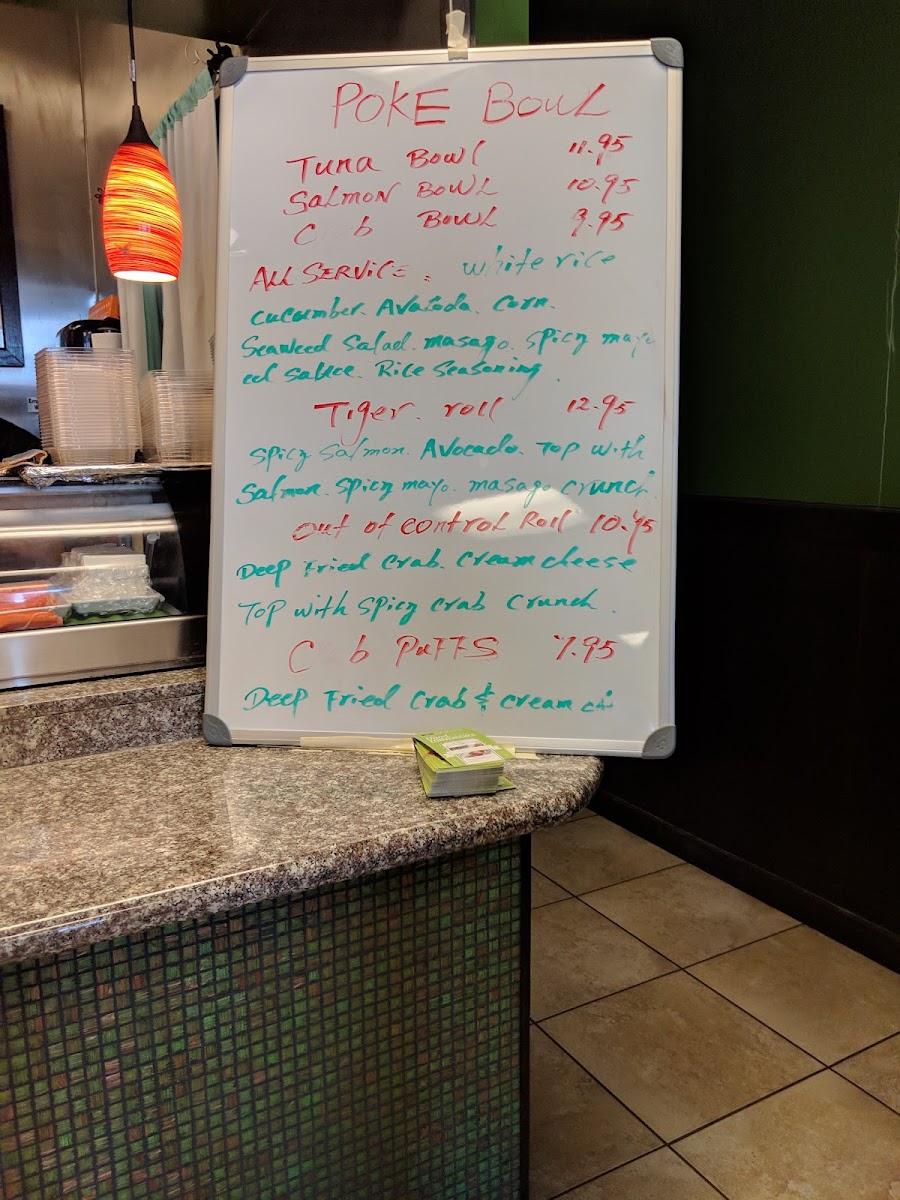 POKE BOWL
Tuna Bowl 11.95
Salmon Bowl 10.95
C b Bowl 9.95
All Service: white rice
cucumber. Avacoda. Corn.
Seaweed Salad. masago. Spicy mayo
eel sauce. Rice Seasoning.
Tiger. roll 12.95
Spicy Salmon. Avocado. Top with
Salmon. Spicy mayo. masago crunch.
Out of control Roll 10.95
Deep Fried Crab. Cream cheese
Top with Spicy crab Crunch.
C b PuFFS 7.95
Deep Fried Crab & cream ch